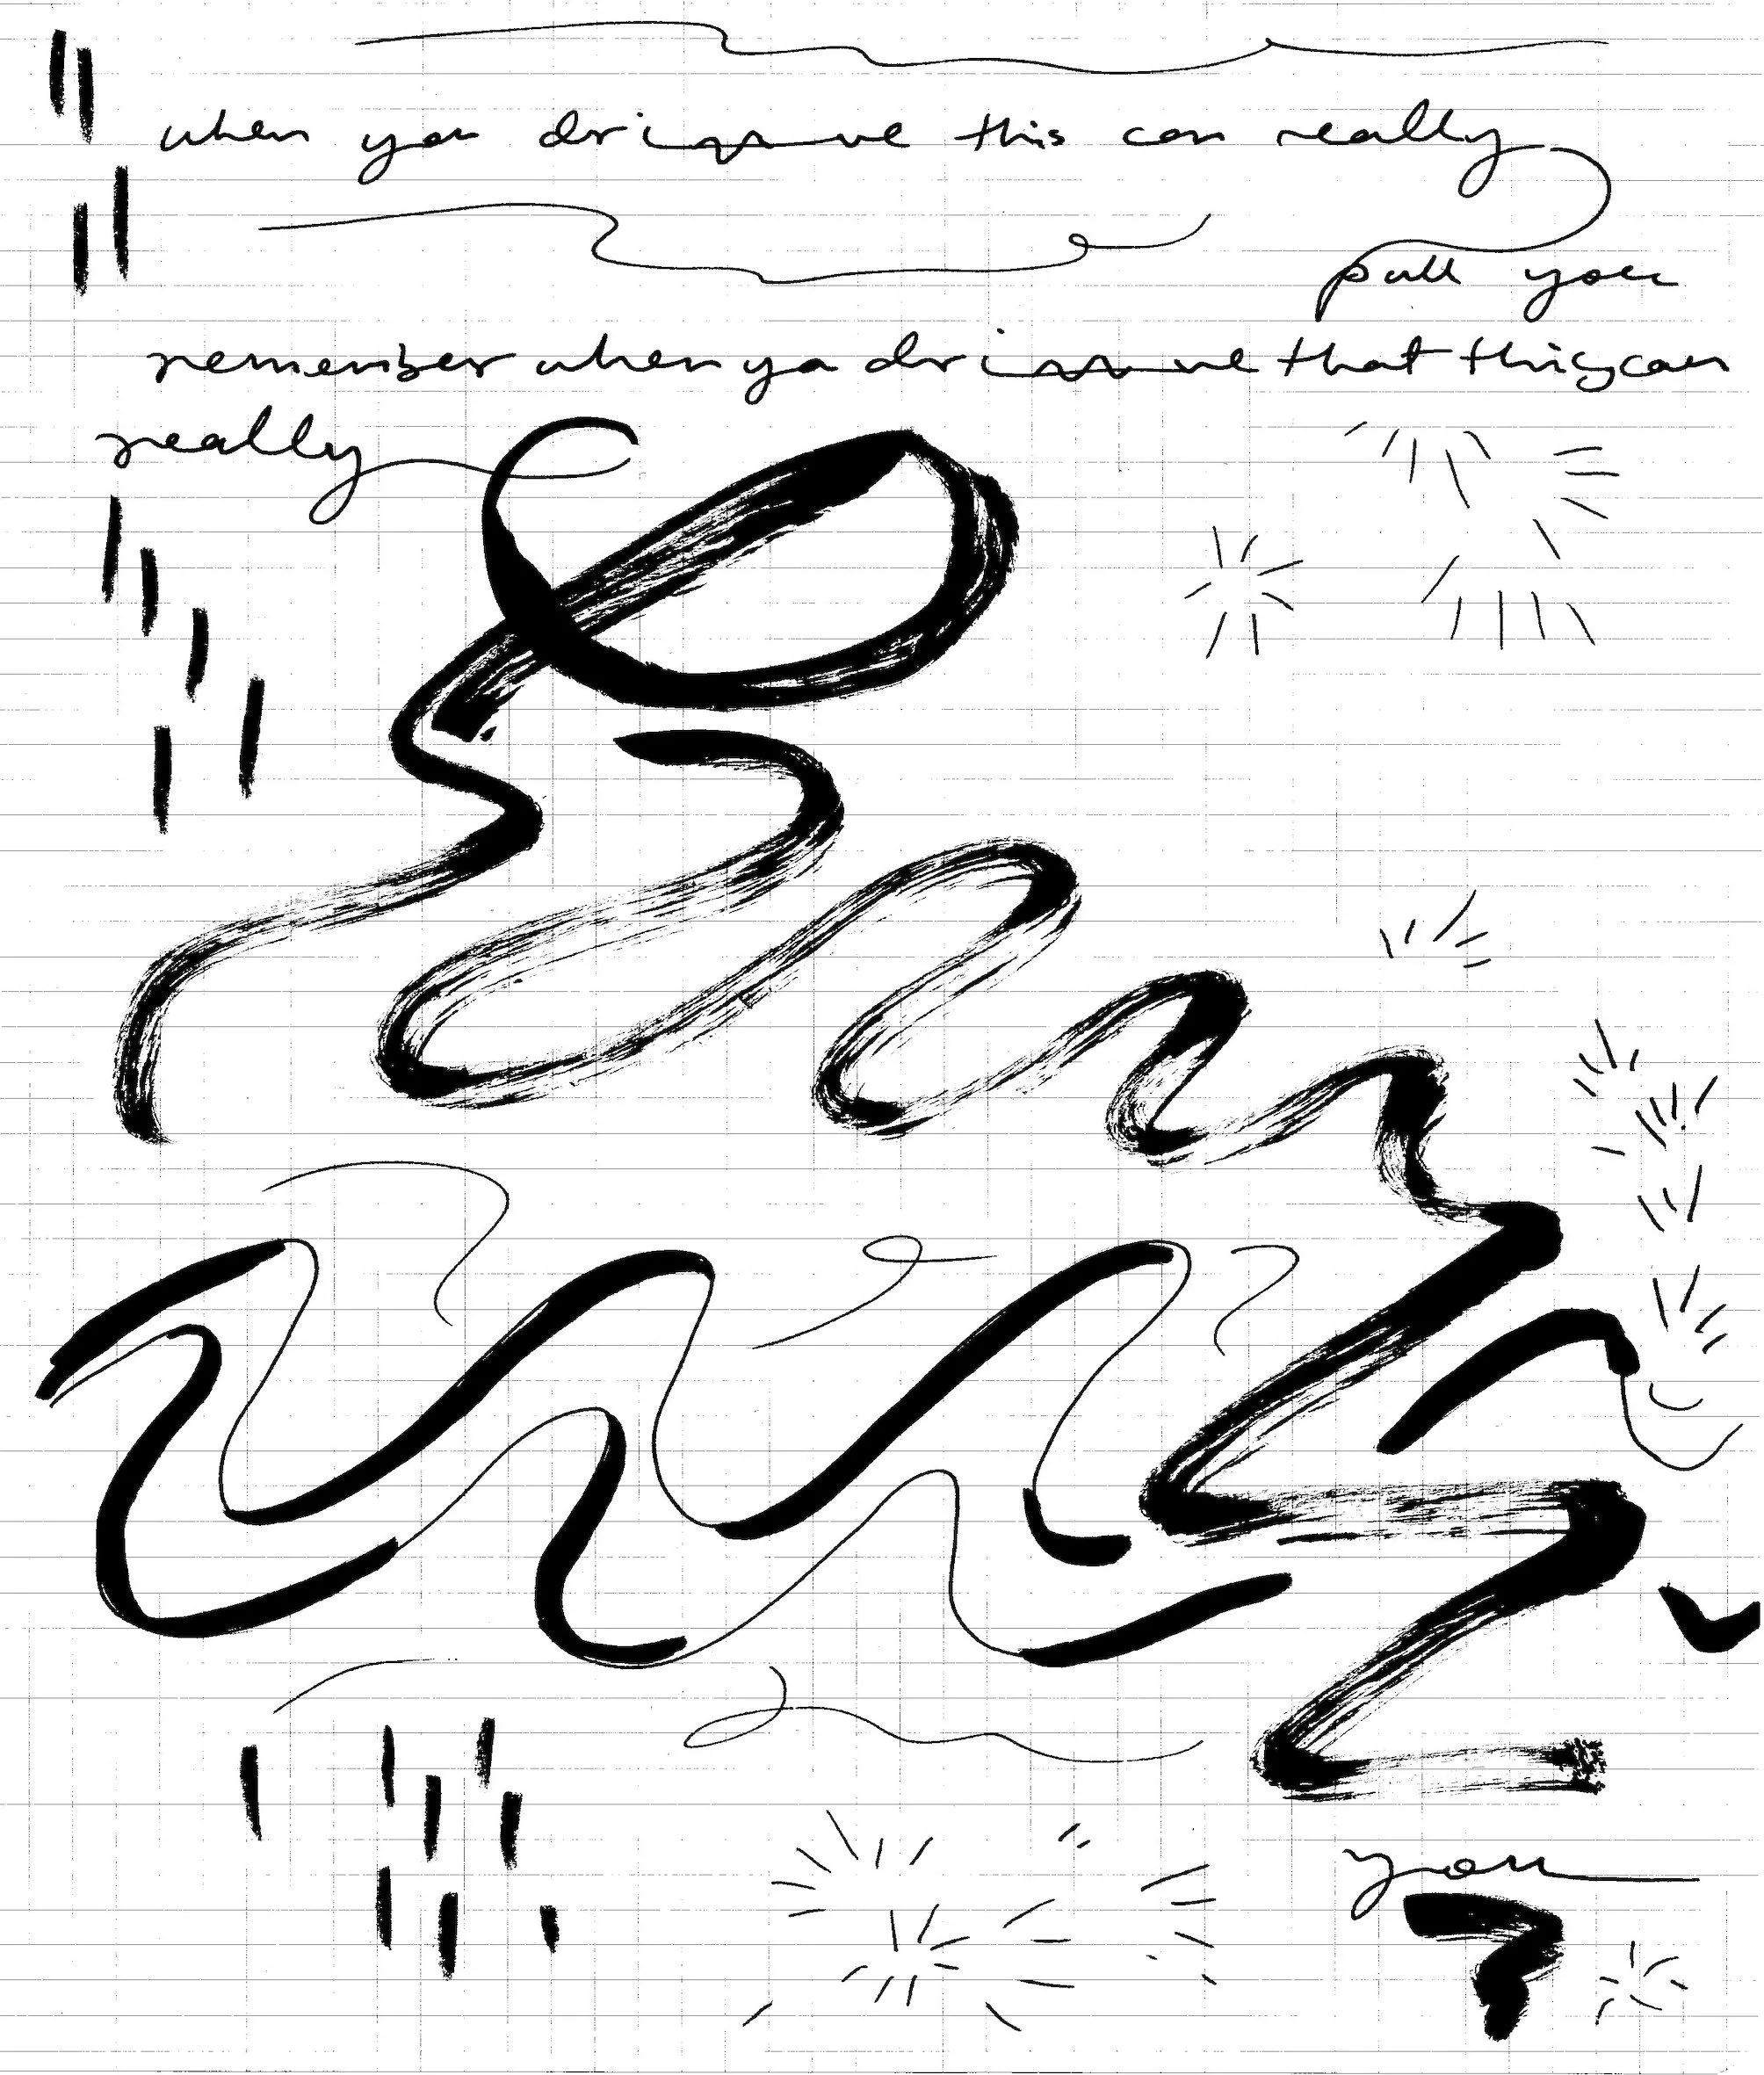 when you drive this can really
pull you
remember when ya drive that this can
really
you